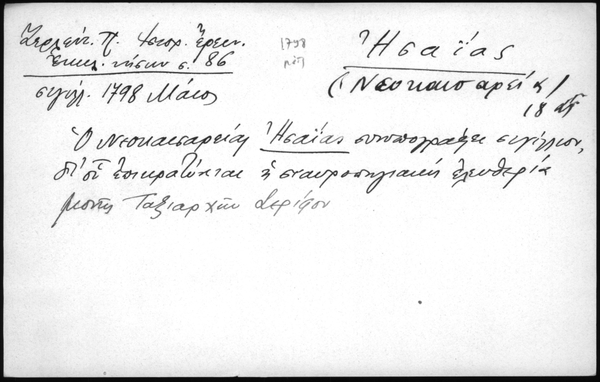 Ζερλέντ. Π. Ἱστορ. Ἔρευν.
Ἐκκλ. νήσων σ. 86
σιγίλ. 1798 Μάιος
1798
Ἠσαΐας
(Νεοκαισαρείας)
18
Ὁ Νεοκαισαρείας Ἠσαΐας συνυπογράφει σιγίλλιον,
δι' οὗ ἐπικρατύνεται ἡ σταυροπηγιακή ἐλευθερία
μονῆς Ταξιαρχῶν Σερίφου